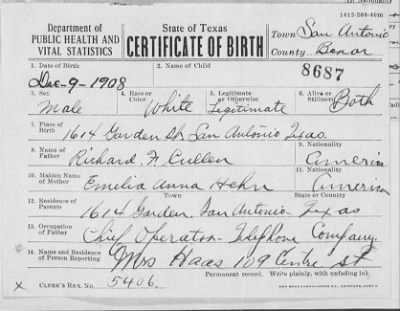 1612-208-40m
Department of
PUBLIC HEALTH AND
VITAL STATISTICS
State of Texas
CERTIFICATE OF BIRTH
Town San Antonio
County Bexar
1. Date of Birth
Dec-9-1908
2. Name of Child
8687
3. Sex
Male
4. Race or Color
White
5. Legitimate or Otherwise
Legitimate
6. Alive or Stillborn
Both
7. Place of Birth
1614 Garden St. San Antonio Texas.
8. Name of Father
Richard F Cullen
9. Nationality
America
10. Maiden Name of Mother
Emilia Anna Hehn
11. Nationality
American
Town
State or Country
12. Residence of Parents
1614 Garden. San Antonio - Texas
13. Occupation of Father
Chief Operator - Telephone Company.
14. Name and Residence of Person Reporting
Mrs Haas 109 Centre St
Permanent record. Write plainly, with unfading ink.
CLERK'S REG. NO. 5406.